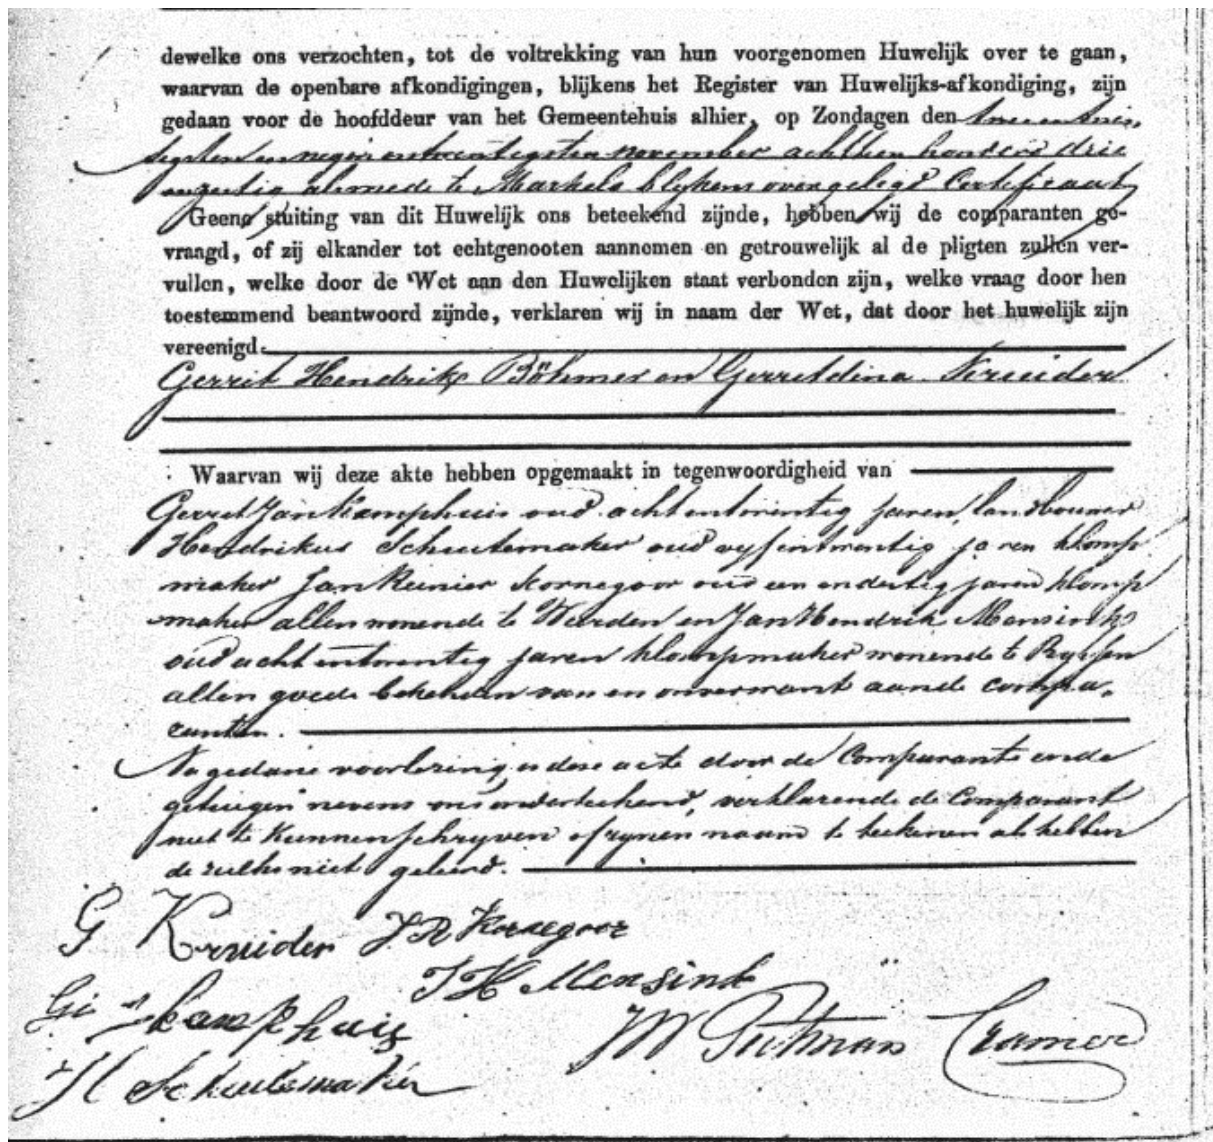 dewelke ons verzochten, tot de voltrekking van hun voorgenomen Huwelijk over te gaan,
waarvan de openbare afkondigingen, blijkens het Register van Huwelijks-afkondiging, zijn
gedaan voor de hoofddeur van het Gemeentehuis alhier, op Zondagen den twee en twin,
tigsten en negen en twentigsten november achttien honderd drie
en zestig alsmede te Markelo blykens overgelegd Certificaat
Geene stuiting van dit Huwelijk ons beteekend zijnde, hebben wij de comparanten ge-
vraagd, of zij elkander tot echtgenooten aannomen en getrouwelijk al de pligten zullen ver-
vullen, welke door de Wet aan den Huwelijken staat verbonden zijn, welke vraag door hen
toestemmend beantwoord zijnde, verklaren wij in naam der Wet, dat door het huwelijk zijn
vereenigd.
Gerrit Hendrik Böhmer en Gerretdina Kruider
Waarvan wij deze akte hebben opgemaakt in tegenwoordigheid van
Gerret Jan Kamphuis oud achtentwentig jaren, landbouwer
Hendrikus Schutemaker oud vyfentwentig jaren klomp
maker Jan Reinier Kornegoor oud een en dertig jaren klomp
maker allen wonende te Wierden en Jan Hendrik Mensink
oud achtentwentig jaren klompmaker wonende te Ryssen
allen goede bekenden van en onverwant aan de compa,
ranten.
Na gedane voorlezing is deze acte door de Comparante en de
getuigen nevens ons onderteekend, verklarende de Comparant
niet te kunnen schryven of zynen naam te teekenen als hebben
de zulks niet geleerd.
G Kruider J R Kornegoor
J H Mensink
G J Kamphuis
J W Putman Cramer
H Schutemaker